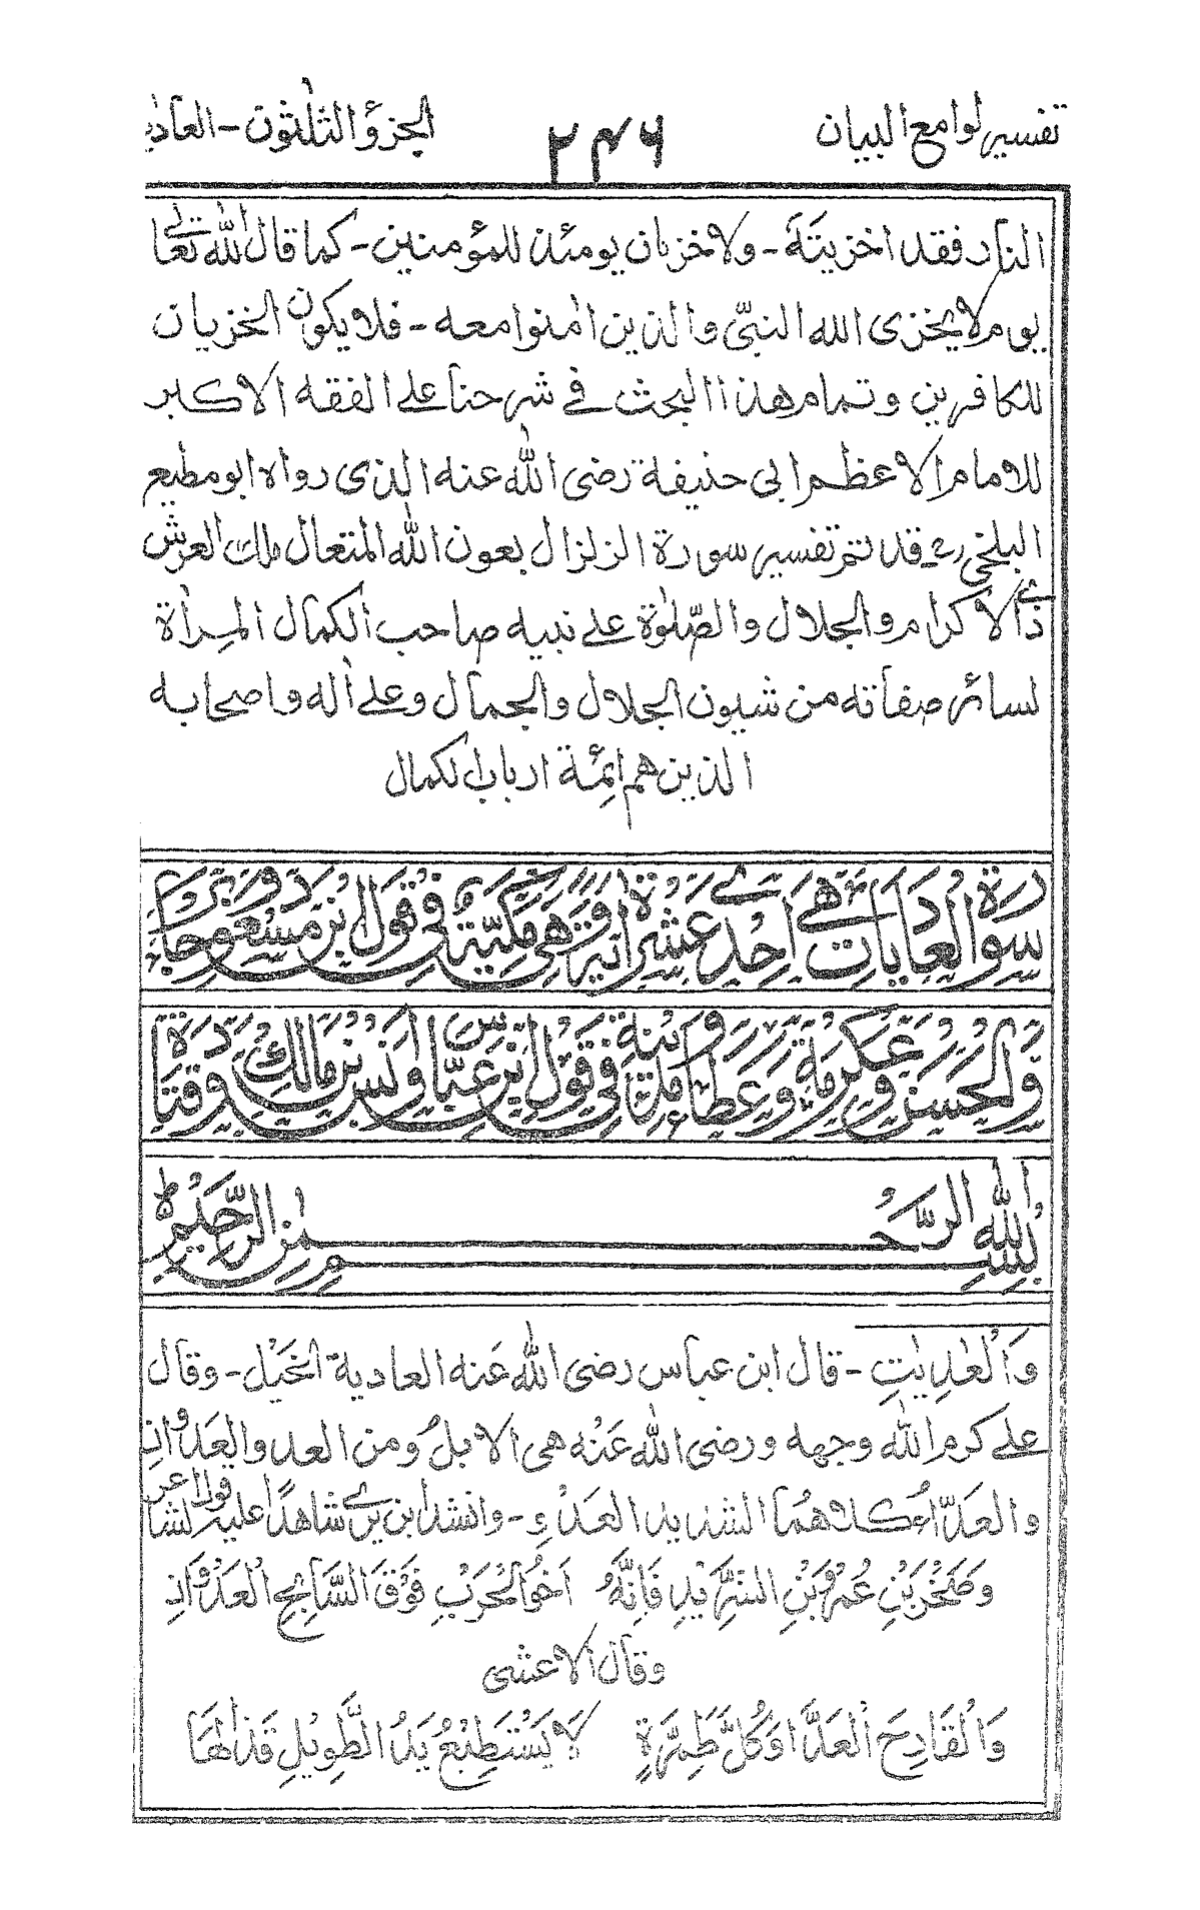 تفسير لوامع البيان ٢٤٦ الجزؤ الثلثون - العاديا
النار فقد اخزيتهٗ - ولا خزيان يومئذ للمؤمنين - كما قال الله تعالى
يوم لا يخزى الله النبىّ والذين اٰمنوا معه - فلا يكون الخزيان
للكافرين وتمام هذا البحث فى شرحنا على الفقه الاكبر
للامام الاعظم ابى حنيفة رضى الله عنه الذى رواه ابو مطيع
البلخى رح قد تم تفسير سورة الزلزال بعون الله المتعال ملك العرش
ذى الاكرام والجلال والصّلوٰة على نبيه صاحب الكمال المراٰة
لسائر صفاته من شيون الجلال والجمال وعلى اٰله واصحابه
الذين هم ائمة ارباب الكمال
سورة العاديات هى احدى عشرة اٰية وهى مكيّة فى قول ابن مسعود وجابر
والحسن وعكرمة وعطاء مدنية فى قول ابن عباس وانس بن مالك وقتادة
بسم الله الرحمٰن الرحيم
وَالْعٰدِيٰتِ - قال ابن عباس رضى الله عَنه العادية الخَيْل - وقال
على كرم الله وجهه ورضى الله عَنْه هى الابلُ ومن العدو والعَدَوانِ
والعَدّاءُ كلاهُما الشديد العَدْوِ - وانشد ابن برى شاهدًا عليه قول الشاعر
وصَخْر بَنِ عُمْرِو بْنِ الشَّرِيْدِ فَاِنَّهُ اَخُو الْحَرْبِ فَوْقَ السَّابِحِ الْعَدَوَانِ
وقال الاعشى
وَالْقَادِحَ الْعَدَّا وَكُلَّ طَمِرَّةٍ لَا يَسْتَطِيْعُ يَدُ الطَّوِيْلِ قَذَالَهَا